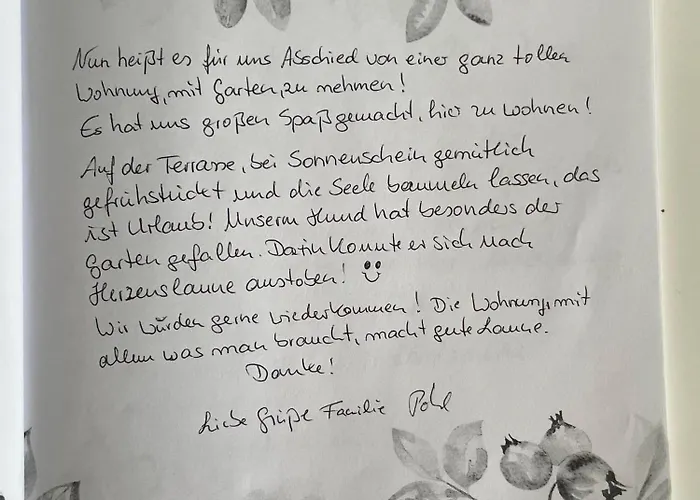 Nun heißt es für uns Abschied von einer ganz tollen
Wohnung, mit Garten, zu nehmen!
Es hat uns großen Spaß gemacht, hier zu wohnen!
Auf der Terrasse, bei Sonnenschein gemütlich
gefrühstückt und die Seele baumeln lassen, das
ist Urlaub! Unserm Hund hat besonders der
Garten gefallen. Darin konnte er sich nach
Herzenslaune austoben!
Wir würden gerne wiederkommen! Die Wohnung, mit
allem was man braucht, macht gute Laune.
Danke!
Liebe Grüße Familie Pohl